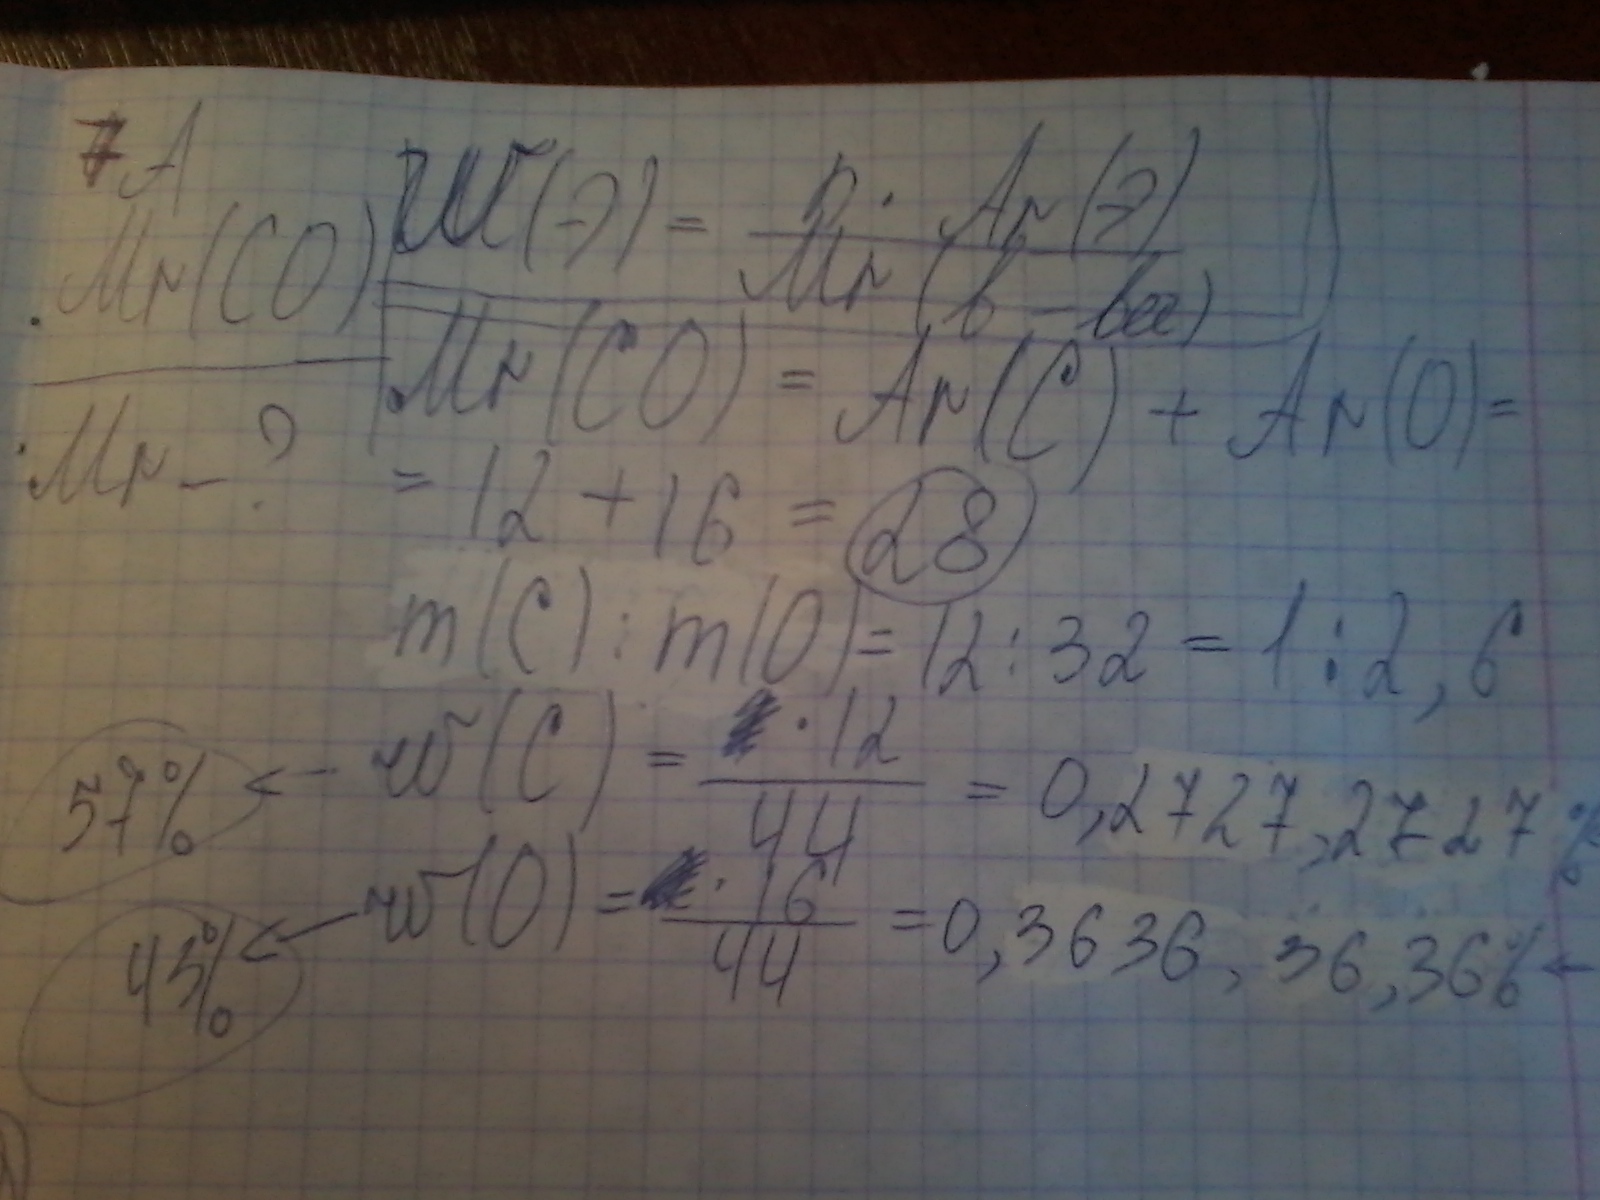 7А
Mr(CO)
Mr - ?
W(Э) = n · Ar(Э) / Mr(в-ва)
Mr(CO) = Ar(C) + Ar(O) =
= 12 + 16 = 28
m(C) : m(O) = 12 : 32 = 1 : 2,6
57% ← w(C) = · 12 / 44 = 0,2727, 27 27 %
43% ← w(O) = · 16 / 44 = 0,3636, 36,36% ←